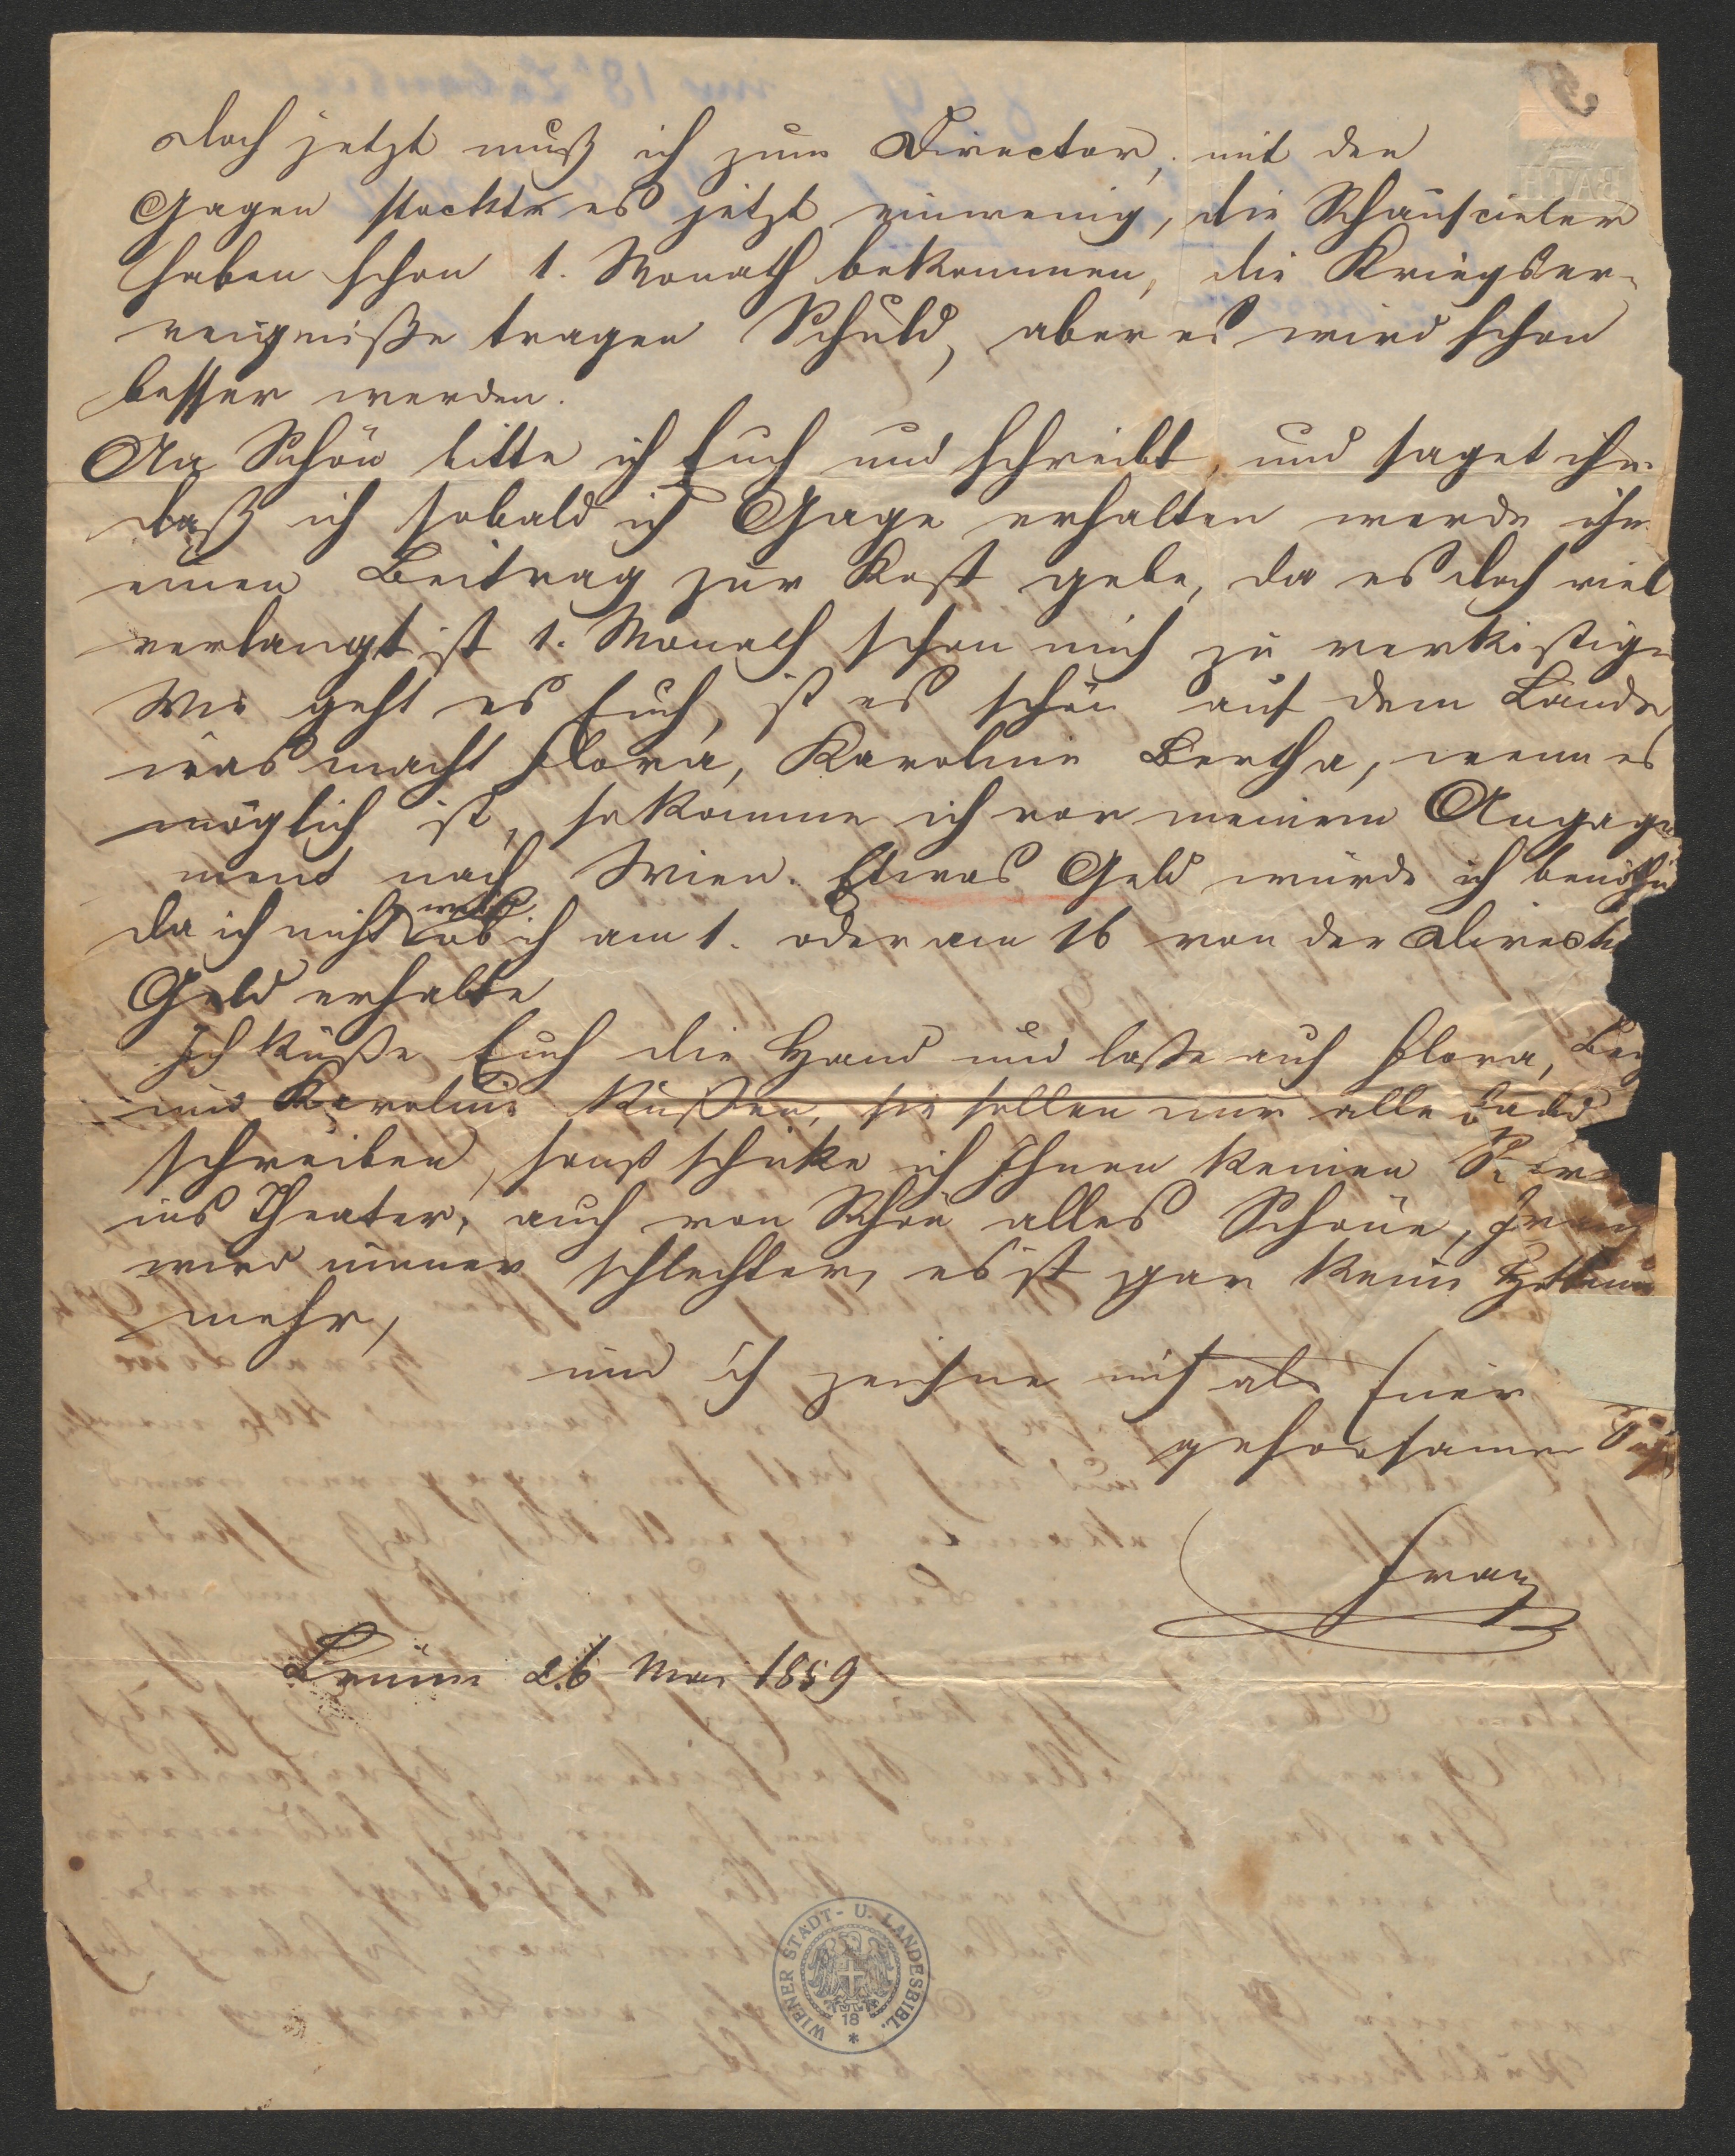 doch jetzt muß ich zum Director, mit den
Gagen stockte es jetzt einwenig, die Schauspieler
haben schon 1. Monath bekommen, die Kriegser-
reigniße tragen Schuld, aber es wird schon
besser werden.
An Schön bitte ich Euch und schreibt, und saget ihm
daß ich sobald ich Gage erhalten werde ihm
einen Beitrag zur Kost gebe, da es doch viel
verlangt ist 1. Monath schon mich zu verköstigen
Wie geht es Euch, ist es schön auf dem Lande
was macht Flora, Karoline Bertha, wenn es
möglich ist, so komme ich vor meinem Angage
ment nach Wien. Etwas Geld würde ich benöthi
da ich nicht weiß ob ich am 1. oder am 16 von der Direct
Geld erhalte
Ich küße Euch die Hand und laße auch Flora, Ber
und Karoline küßen, sie sollen nur alle bald
schreiben, sonst schicke ich Ihnen keinen
ins Theater, auch von Schön alles Schöne, Franz
wird immer schlechter, es ist gar keine
mehr,
und ich zeichne mich als Euer
gehorsamer
Franz
Brünn 26 Mai 1859
WIENER STADT- U. LANDESBIBL.
18